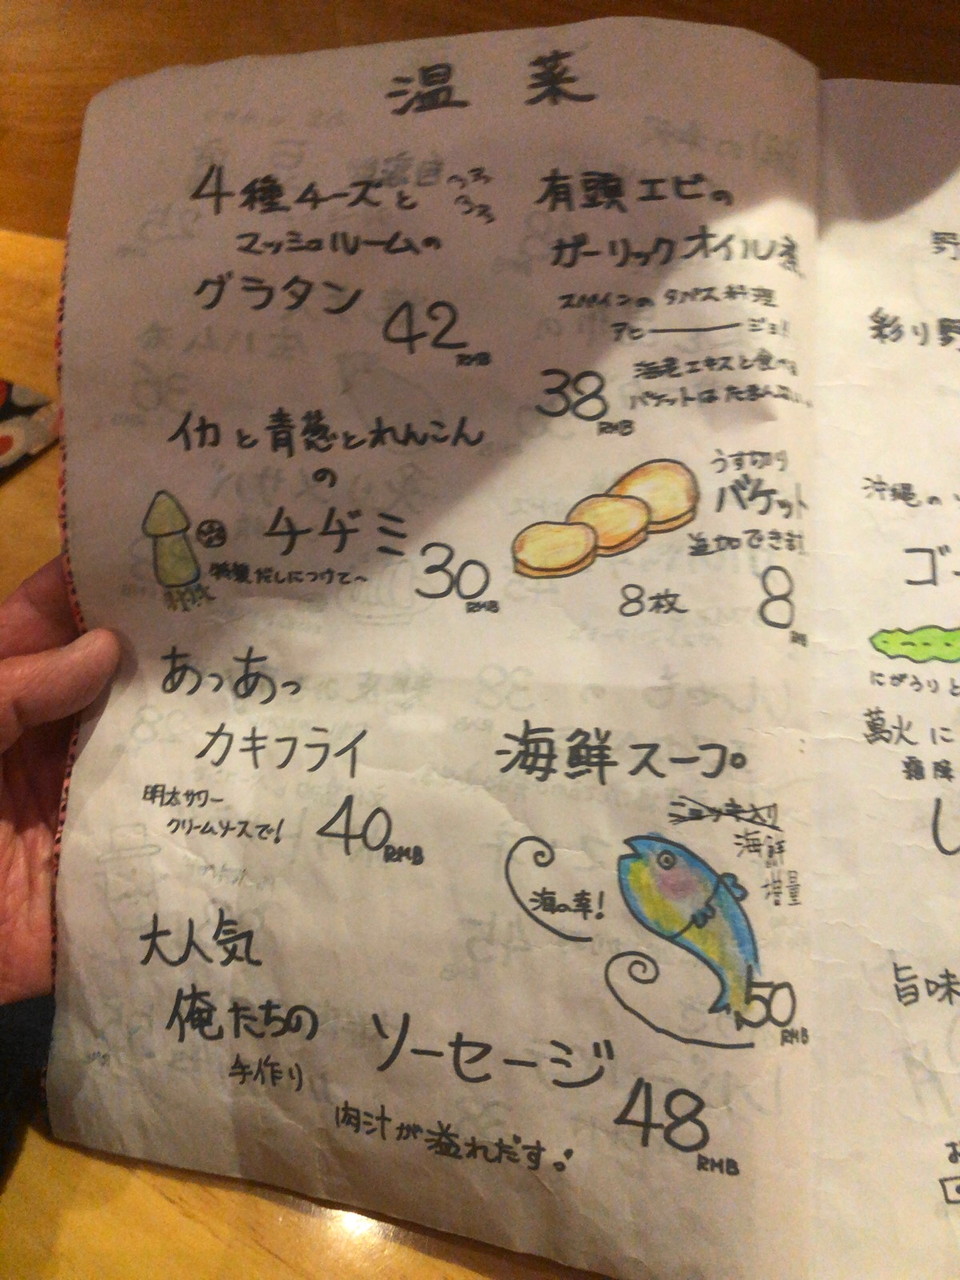 温菜
4種チーズと
マッシュルームの
グラタン
42
RMB
有頭エビの
ガーリックオイル煮
スペインのタパス料理
アヒージョ!
海老エキスと食べる
バケットはたまんない
38
RMB
イカと青葱とれんこん
の
チヂミ
特製だしにつけて〜
30
RMB
うす切り
バケット
追加できます
8枚
8
あっあっ
カキフライ
明太サワー
クリームソースで!
40
RMB
海鮮スープ
ジョッキ入り
海鮮
増量
海の幸!
50
RMB
大人気
俺たちの
手作り
ソーセージ
48
RMB
肉汁が溢れだす!
野
彩り野
沖縄の
ゴー
にがうりと
萬火に
霜降
旨味
お